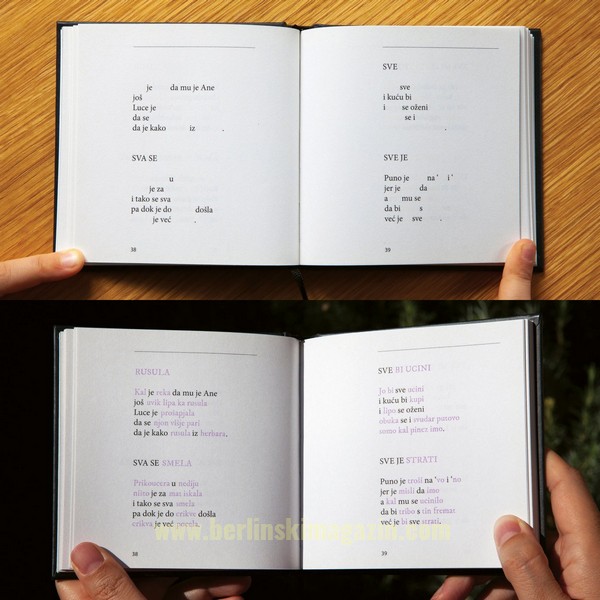 je da mu je Ane
još
Luce je
da se
da je kako iz .
SVA SE
u
je za
i tako se sva
pa dok je do došla
je već .
38
SVE
sve
i kuću bi
i se oženi
se i
.
SVE JE
Puno je na ' i '
jer je da
a mu se
da bi s
već je sve .
39
RUSULA
Kal je reka da mu je Ane
još uvik lipa ka rusula
Luce je protapjala
da se njon vlije pari
da je kako rusula iz herbara.
SVA SE SMELA
Prikosutra u nedija
ništo je za stat iskala
i tako se sva smela
pa dok je do crikve došla
crikva je već počela.
38
SVE BI UCINI
Jo bi sve ucini
i kuću bi kupi
i lipo se oženi
obuka se i svudar putovo
somo kal pinez imo.
SVE JE STRATI
Puno je troši na 'vo i 'no
jer je misli da imo
a kal mu se ucinilo
da bi tribo s tin fremat
već je bi sve strati.
39
www.berlinskimagazin.com